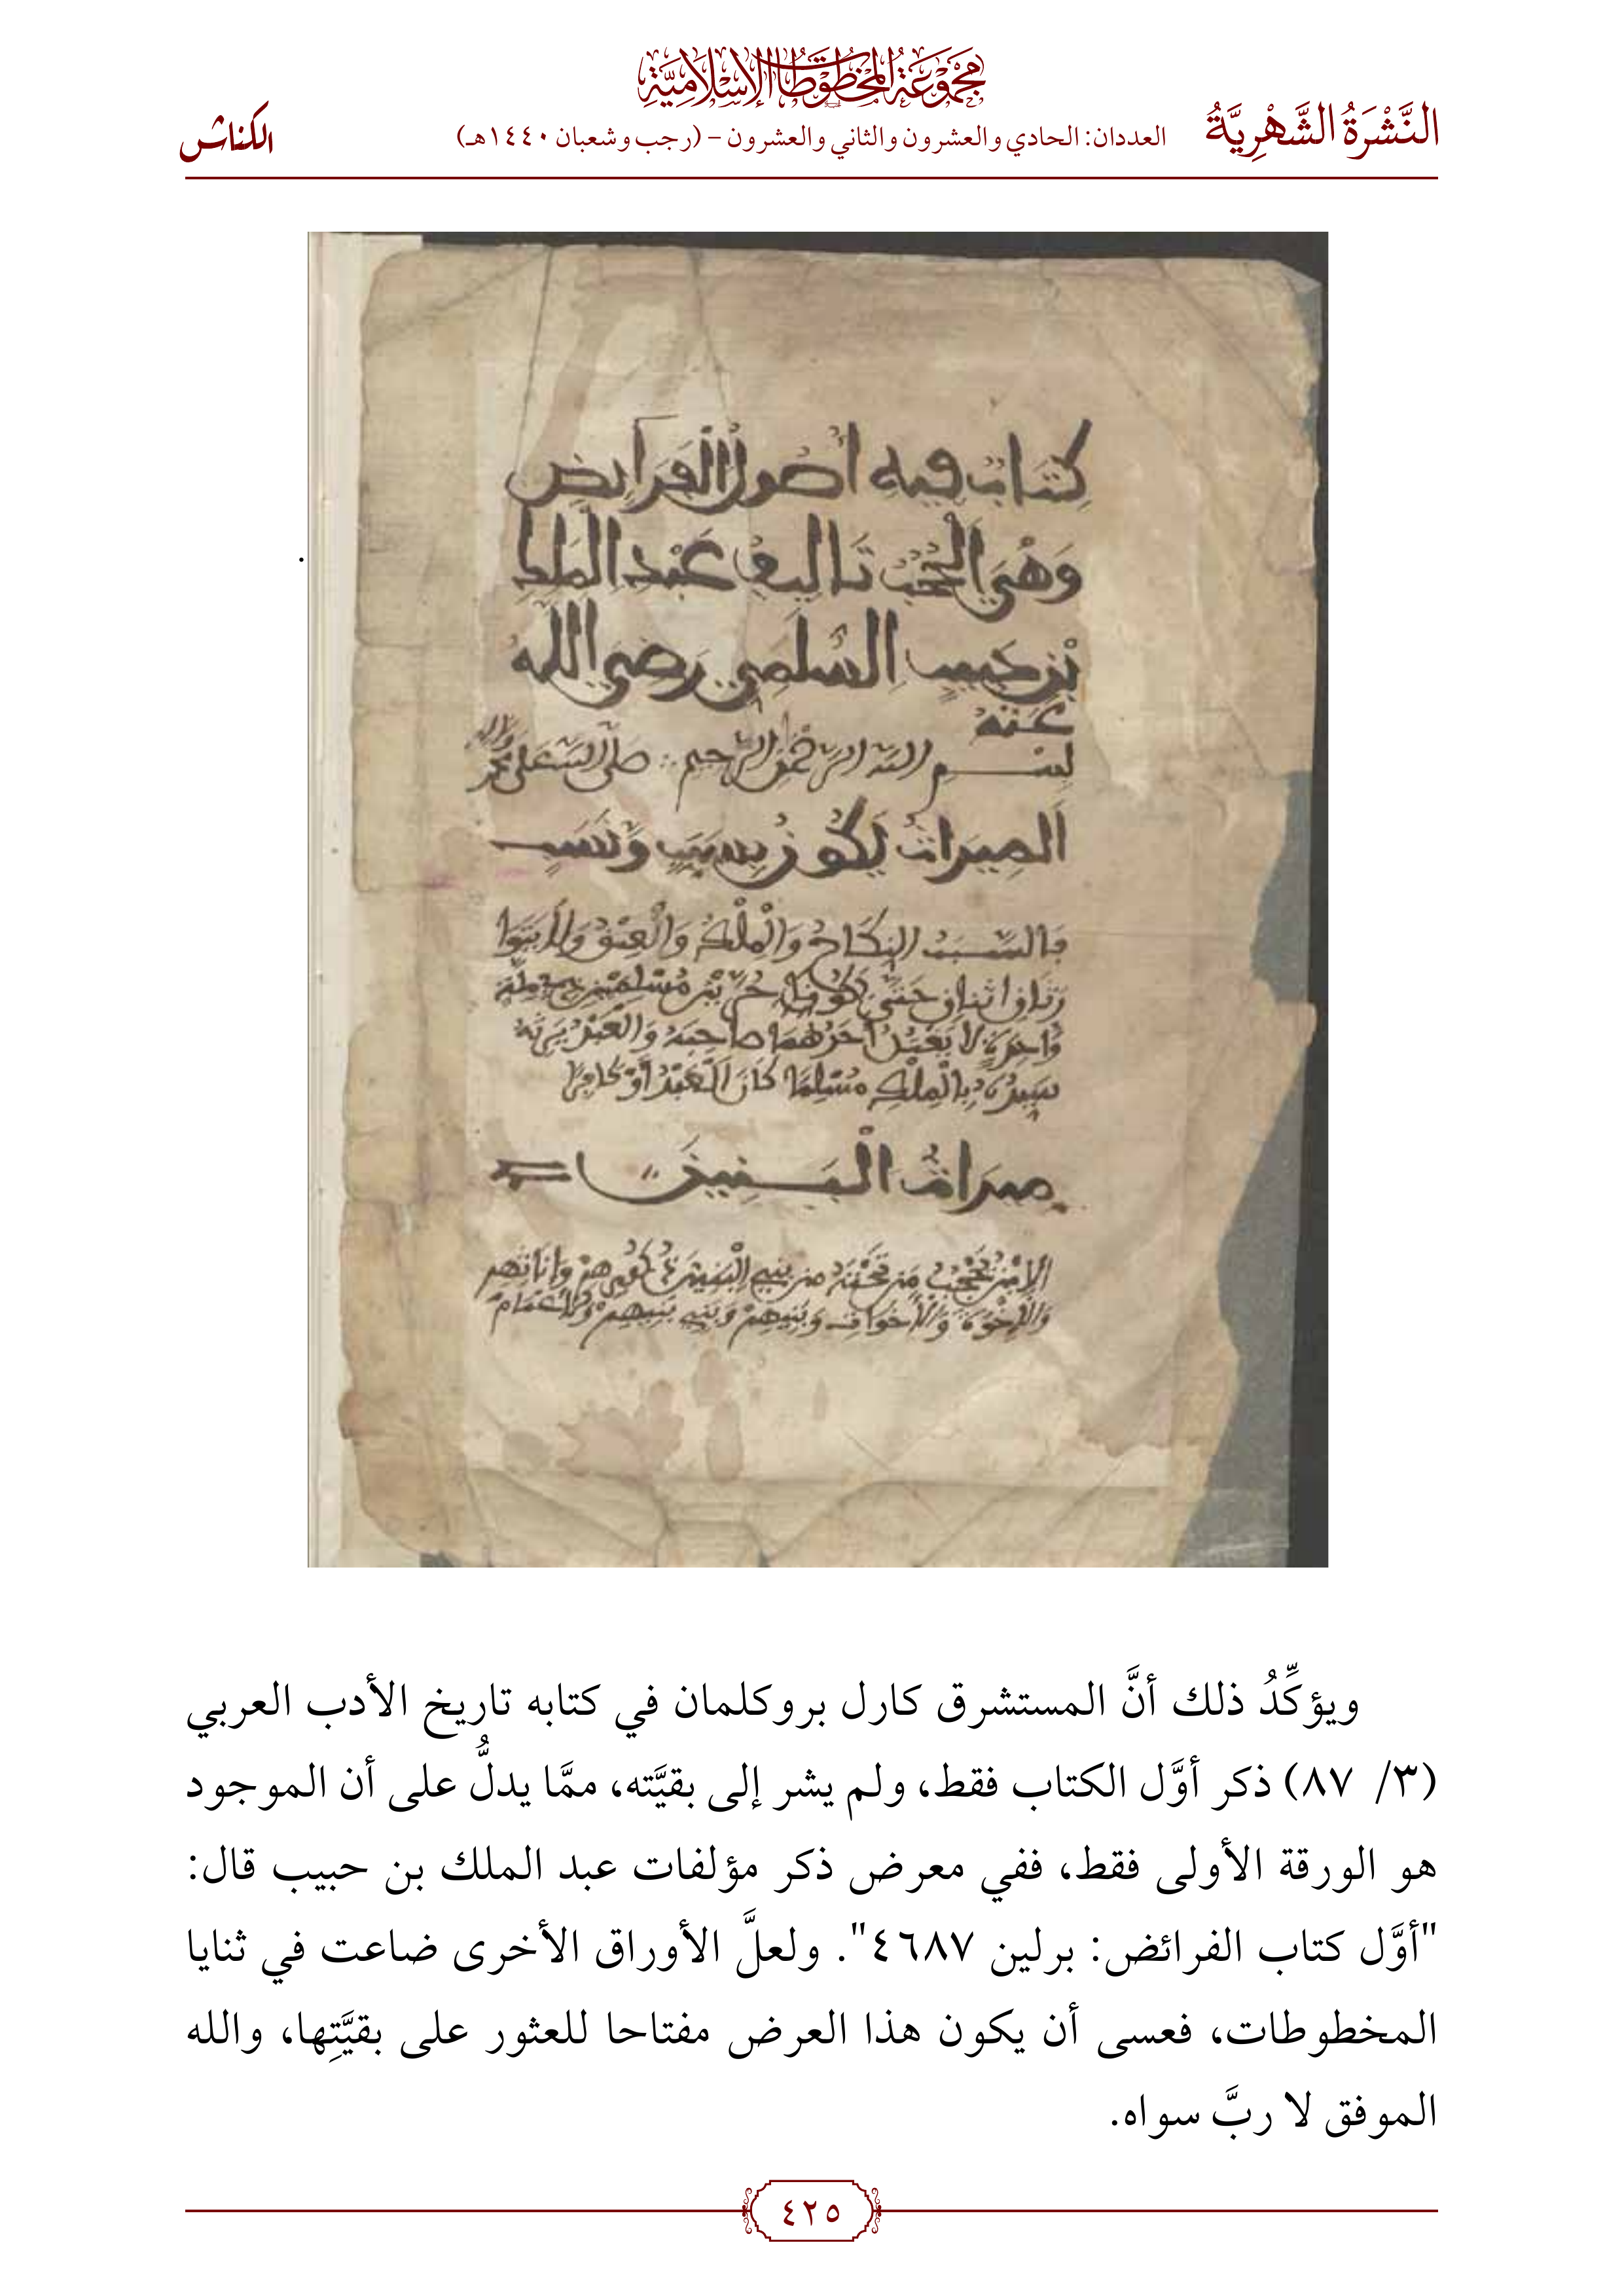 مجموعة المخطوطات الإسلامية
النَّشْرَةُ الشَّهْرِيَّةُ
العددان: الحادي والعشرون والثاني والعشرون – (رجب وشعبان ١٤٤٠هـ)
الكناش
كِتَابٌ فيه أصول الفَرَايض
وَهْيَ الحُجُبُ تَاليف عَبْد الملك
بْن حَبِيب السُّلَمِي رَضِي الله
عَنْهُ
بسم الله الرحمن الرحيم صلى الله على محمد وآله
الميراث يَكُون بِسَبَبٍ وَنَسَبٍ
فالسَّبَبُ النِّكَاحُ وَالْمِلْكُ وَالْعِتْقُ وَلا يَتَوَا
رَثَانِ اثنان حَتَّى يَكُونَا حُرَّيْنِ مُسْلِمَيْنِ مِلَّة
وَاحِدَةٍ لا يَقْتُلُ أحَدُهُمَا صَاحِبَهُ وَالْعَبْدُ يَرِثُهُ
سَيِّدُهُ بِالْمِلْكِ مُسْلِمًا كَانَ الْعَبْدُ أوْ كَافِرًا
مِيرَاثُ الْبَنِينَ
الابْنُ يَحْجُبُ مَن تَحْتَهُ من بَنِي الْبَنِينَ ذُكُورِهِمْ وَإنَاثِهِم
وَالإخْوَةَ وَالأخَوَاتِ وَبَنِيهِمْ وَبَنِي بَنِيهِمْ وَالأعْمَامَ
ويؤكِّدُ ذلك أنَّ المستشرق كارل بروكلمان في كتابه تاريخ الأدب العربي
(٣/ ٨٧) ذكر أوَّل الكتاب فقط، ولم يشر إلى بقيَّته، ممَّا يدلُّ على أن الموجود
هو الورقة الأولى فقط، ففي معرض ذكر مؤلفات عبد الملك بن حبيب قال:
"أوَّل كتاب الفرائض: برلين ٤٦٨٧". ولعلَّ الأوراق الأخرى ضاعت في ثنايا
المخطوطات، فعسى أن يكون هذا العرض مفتاحا للعثور على بقيَّتِها، والله
الموفق لا ربَّ سواه.
٤٢٥